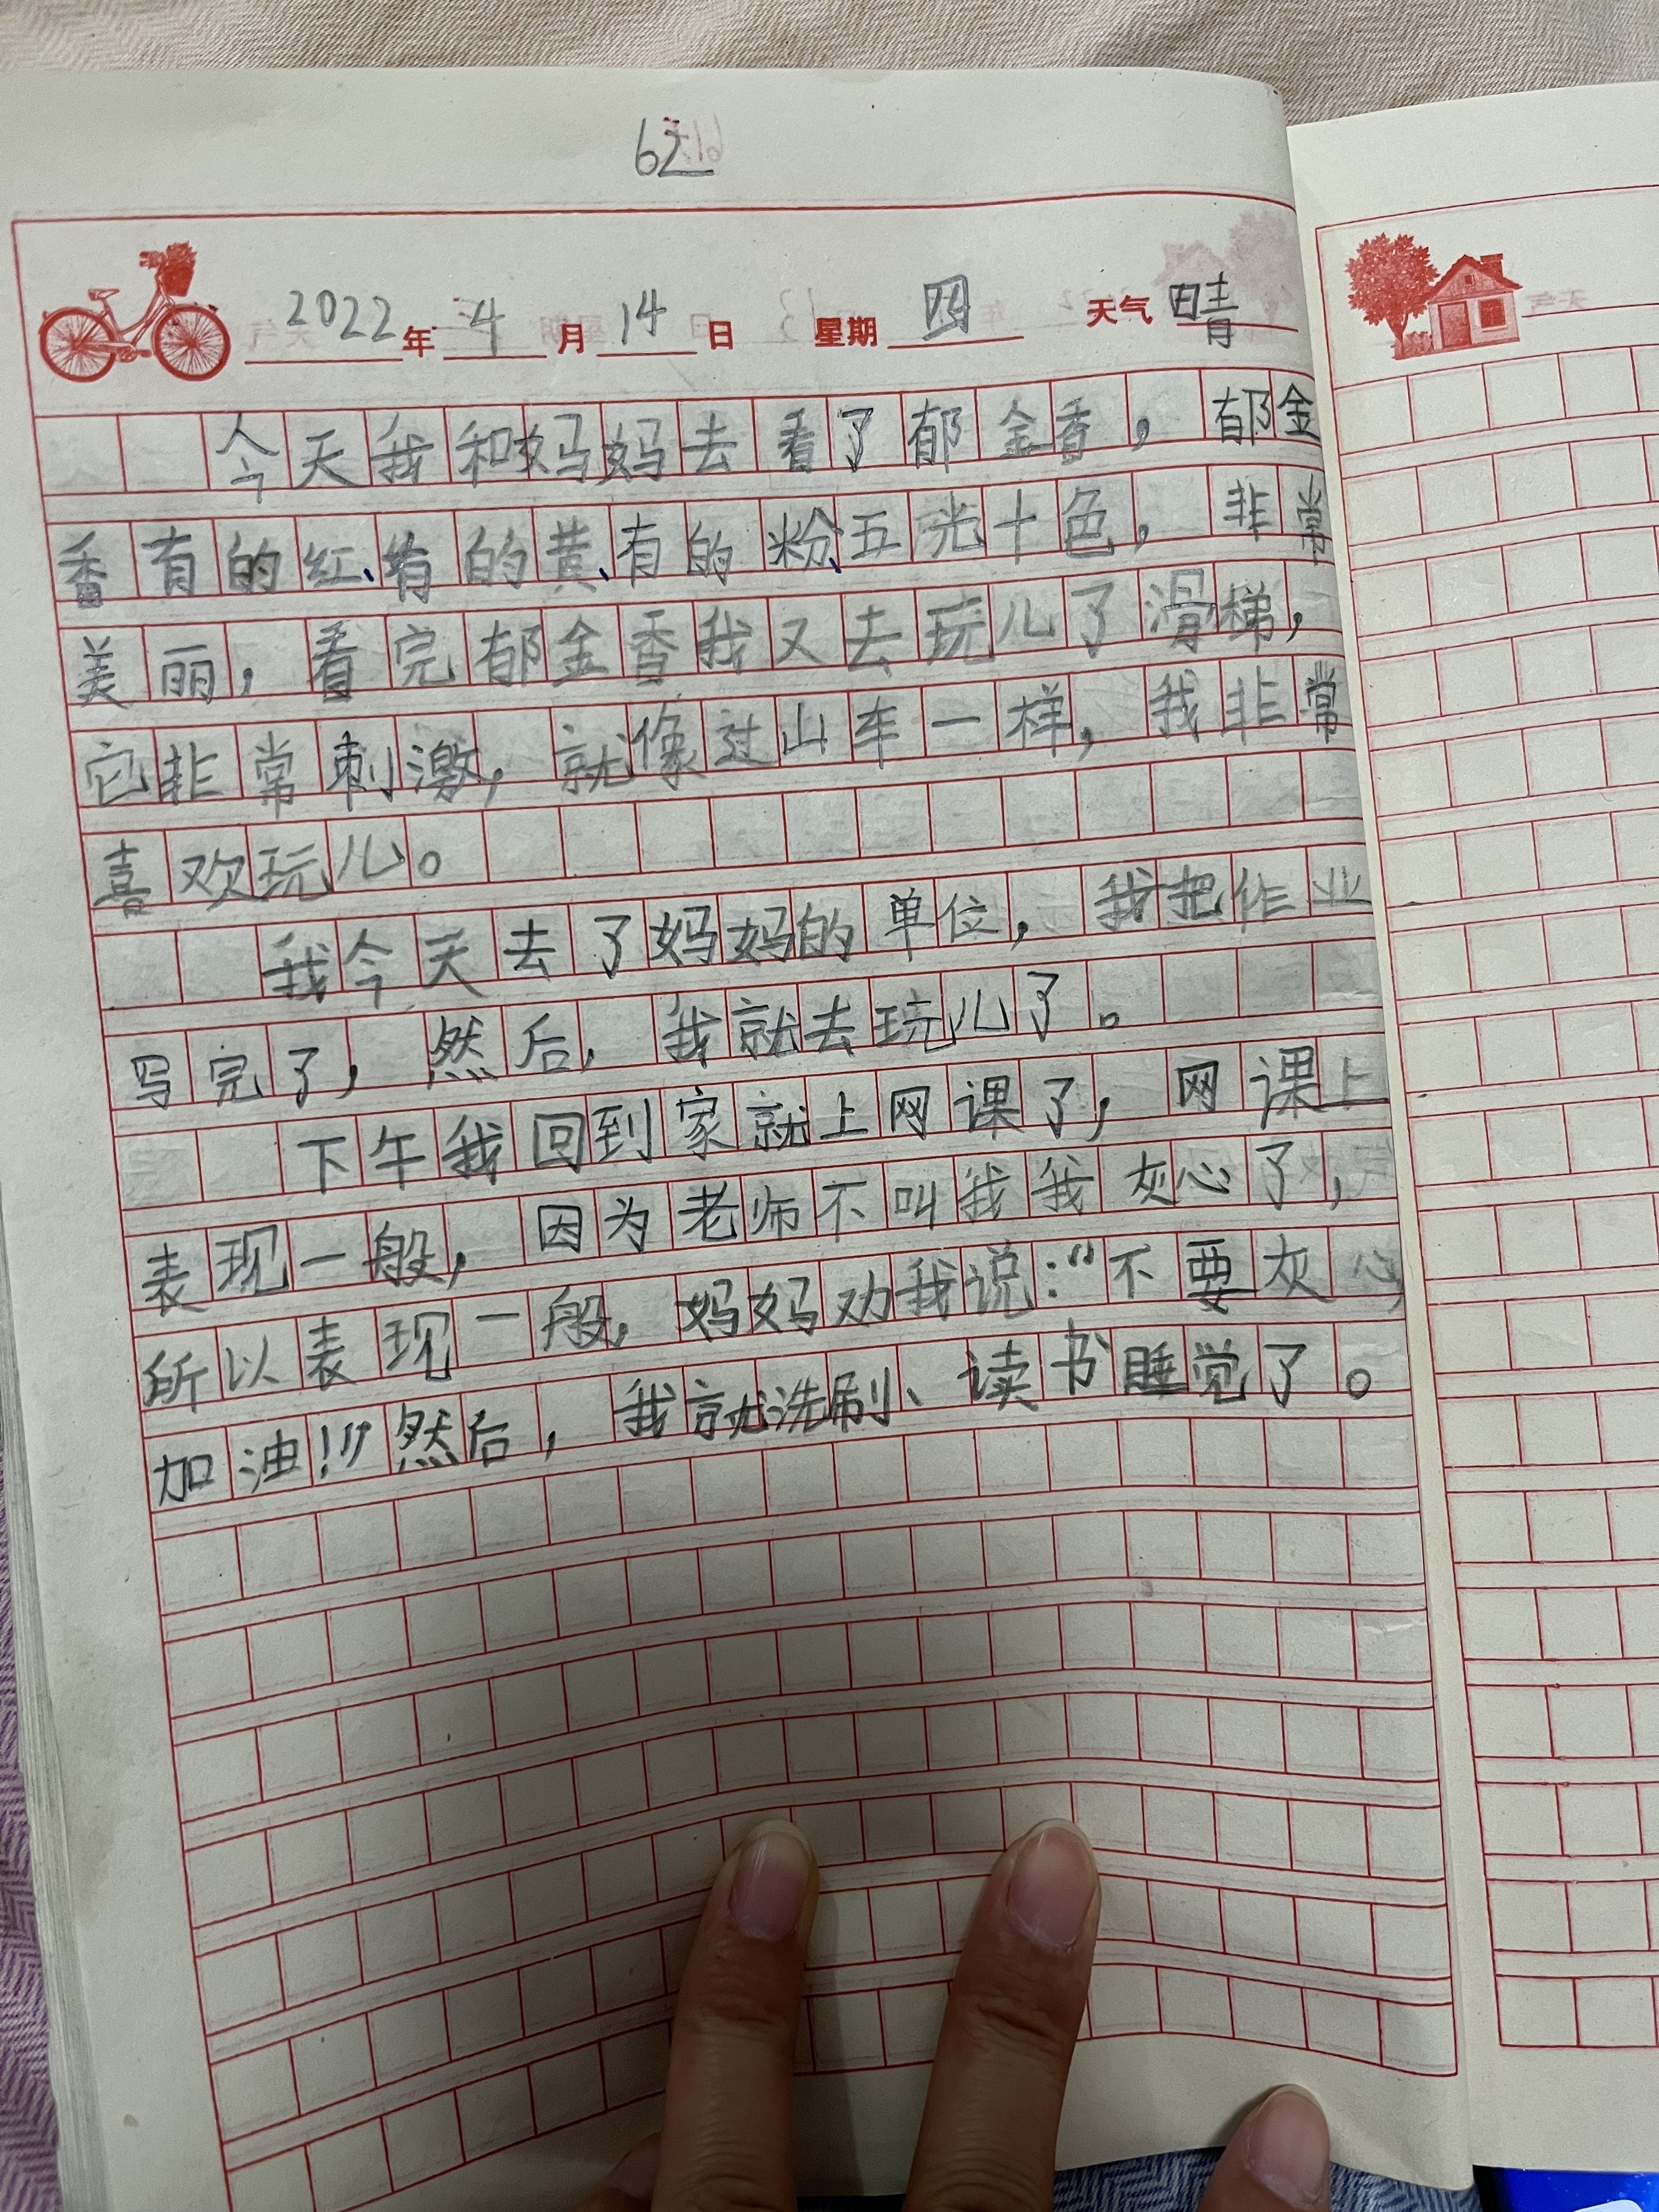 62
2022年4月14日 星期四 天气晴
今天我和妈妈去看了郁金香，郁金
香有的红、有的黄、有的粉、五光十色，非常
美丽，看完郁金香我又去玩儿了滑梯，
它非常刺激，就像过山车一样，我非常
喜欢玩儿。
我今天去了妈妈的单位，我把作业
写完了，然后，我就去玩儿了。
下午我回到家就上网课了，网课上
表现一般，因为老师不叫我我灰心了，
所以表现一般，妈妈劝我说：“不要灰心，
加油！”然后，我就洗刷、读书睡觉了。